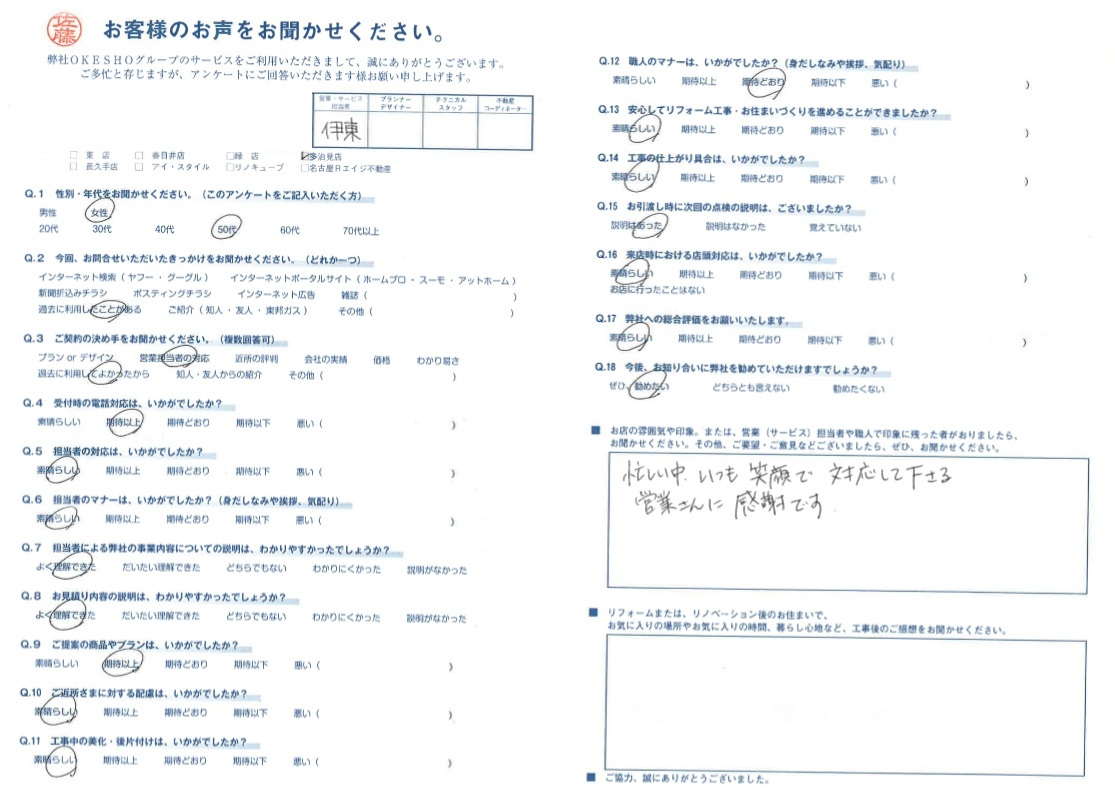 佐藤
お客様のお声をお聞かせください。
弊社OKESHOグループのサービスをご利用いただきまして、誠にありがとうございます。
ご多忙と存じますが、アンケートにご回答いただきます様お願い申し上げます。
営業・サービス担当者 プランナーデザイナー テクニカルスタッフ 不動産コーディネーター
伊東
□ 東 店 □ 春日井店 □緑 店 ☑多治見店
□ 長久手店 □ アイ・スタイル □リノキューブ □名古屋Rエイジ不動産
Q.1 性別・年代をお聞かせください。(このアンケートをご記入いただく方)
男性 女性
20代 30代 40代 50代 60代 70代以上
Q.2 今回、お問合せいただいたきっかけをお聞かせください。(どれか一つ)
インターネット検索(ヤフー・グーグル) インターネットポータルサイト(ホームプロ・スーモ・アットホーム)
新聞折込みチラシ ポスティングチラシ インターネット広告 雑誌( )
過去に利用したことがある ご紹介(知人・友人・東邦ガス) その他( )
Q.3 ご契約の決め手をお聞かせください。(複数回答可)
プラン or デザイン 営業担当者の対応 近所の評判 会社の実績 価格 わかり易さ
過去に利用してよかったから 知人・友人からの紹介 その他( )
Q.4 受付時の電話対応は、いかがでしたか?
素晴らしい 期待以上 期待どおり 期待以下 悪い( )
Q.5 担当者の対応は、いかがでしたか?
素晴らしい 期待以上 期待どおり 期待以下 悪い( )
Q.6 担当者のマナーは、いかがでしたか?(身だしなみや挨拶、気配り)
素晴らしい 期待以上 期待どおり 期待以下 悪い( )
Q.7 担当者による弊社の事業内容についての説明は、わかりやすかったでしょうか?
よく理解できた だいたい理解できた どちらでもない わかりにくかった 説明がなかった
Q.8 お見積り内容の説明は、わかりやすかったでしょうか?
よく理解できた だいたい理解できた どちらでもない わかりにくかった 説明がなかった
Q.9 ご提案の商品やプランは、いかがでしたか?
素晴らしい 期待以上 期待どおり 期待以下 悪い( )
Q.10 ご近所さまに対する配慮は、いかがでしたか?
素晴らしい 期待以上 期待どおり 期待以下 悪い( )
Q.11 工事中の美化・後片付けは、いかがでしたか?
素晴らしい 期待以上 期待どおり 期待以下 悪い( )
Q.12 職人のマナーは、いかがでしたか?(身だしなみや挨拶、気配り)
素晴らしい 期待以上 期待どおり 期待以下 悪い( )
Q.13 安心してリフォーム工事・お住まいづくりを進めることができましたか?
素晴らしい 期待以上 期待どおり 期待以下 悪い( )
Q.14 工事の仕上がり具合は、いかがでしたか?
素晴らしい 期待以上 期待どおり 期待以下 悪い( )
Q.15 お引渡し時に次回の点検の説明は、ございましたか?
説明はあった 説明はなかった 覚えていない
Q.16 来店時における店頭対応は、いかがでしたか?
素晴らしい 期待以上 期待どおり 期待以下 悪い( )
お店に行ったことはない
Q.17 弊社への総合評価をお願いいたします。
素晴らしい 期待以上 期待どおり 期待以下 悪い( )
Q.18 今後、お知り合いに弊社を勧めていただけますでしょうか?
ぜひ、勧めたい どちらとも言えない 勧めたくない
■ お店の雰囲気や印象。または、営業(サービス)担当者や職人で印象に残った者がおりましたら、
お聞かせください。その他、ご要望・ご意見などございましたら、ぜひ、お聞かせください。
忙しい中、いつも笑顔で対応して下さる
営業さんに感謝です
■ リフォームまたは、リノベーション後のお住まいで、
お気に入りの場所やお気に入りの時間、暮らし心地など、工事後のご感想をお聞かせください。
■ ご協力、誠にありがとうございました。